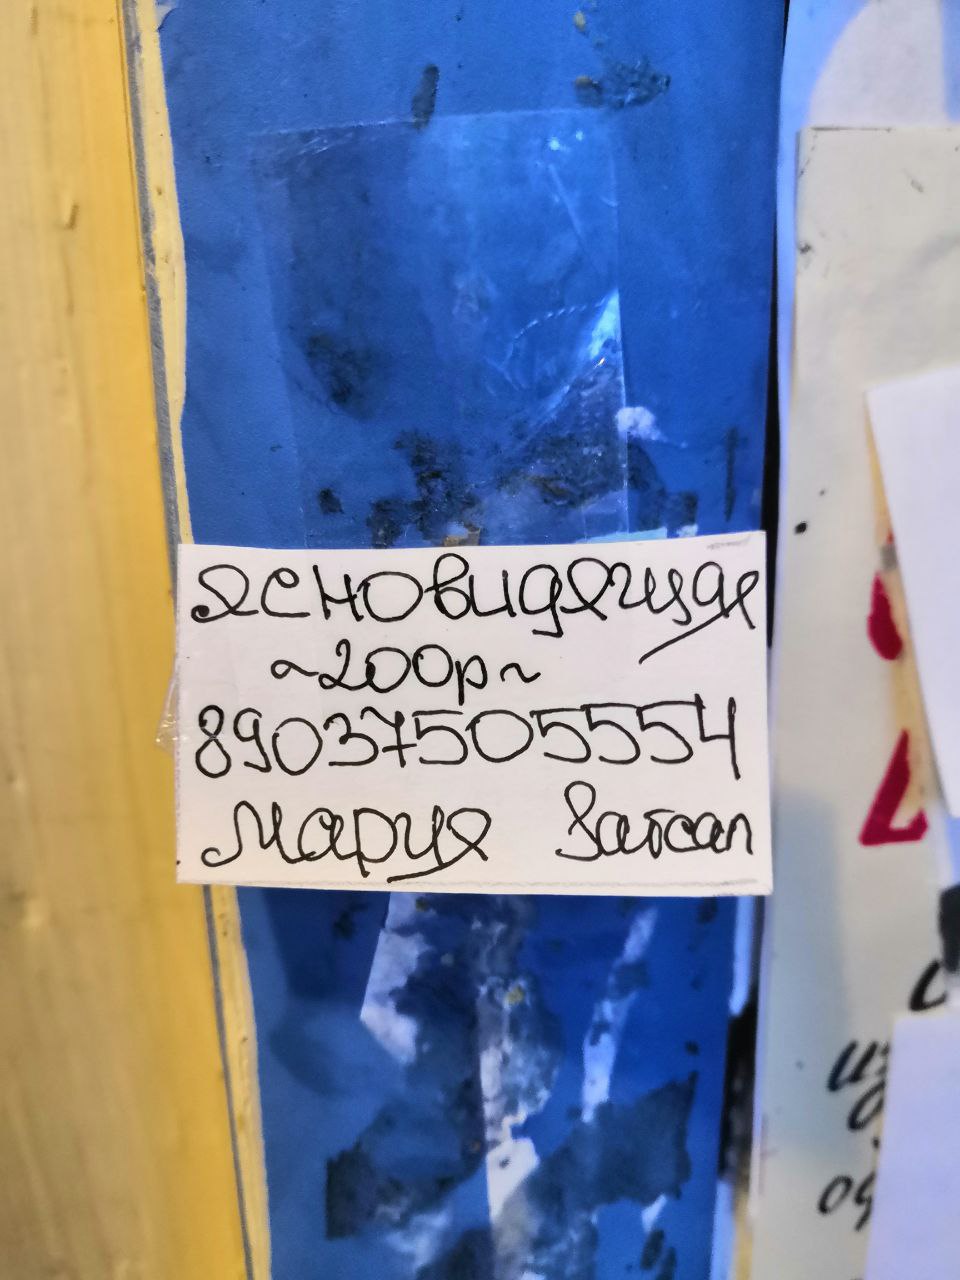 Ясновидящая
~200р~
89037505554
Мария Ватсап